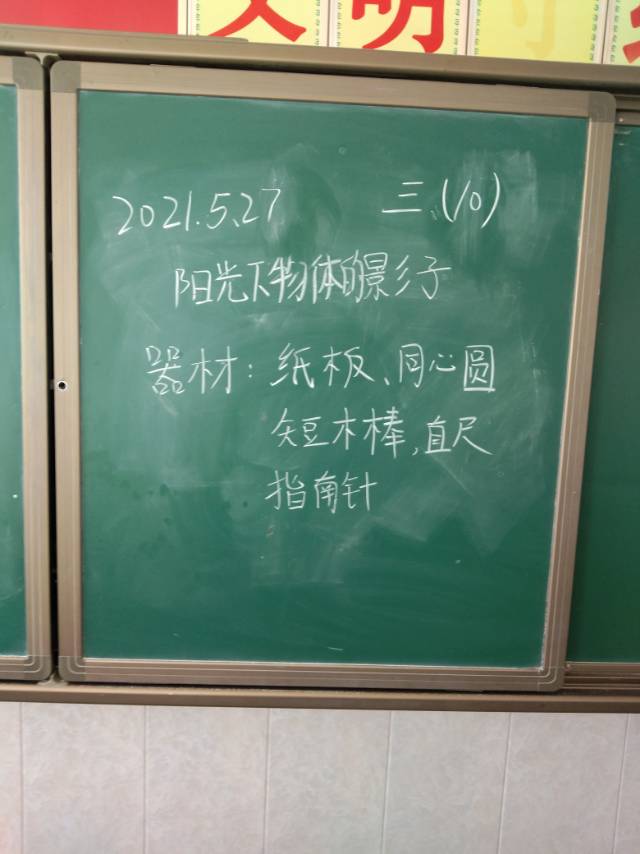 文明
2021.5.27 三、(10)
阳光下物体的影子
器材：纸板、同心圆
短木棒，直尺
指南针